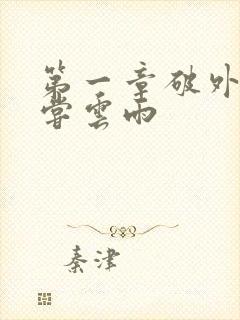 第一章破外
尝云雨
秦津